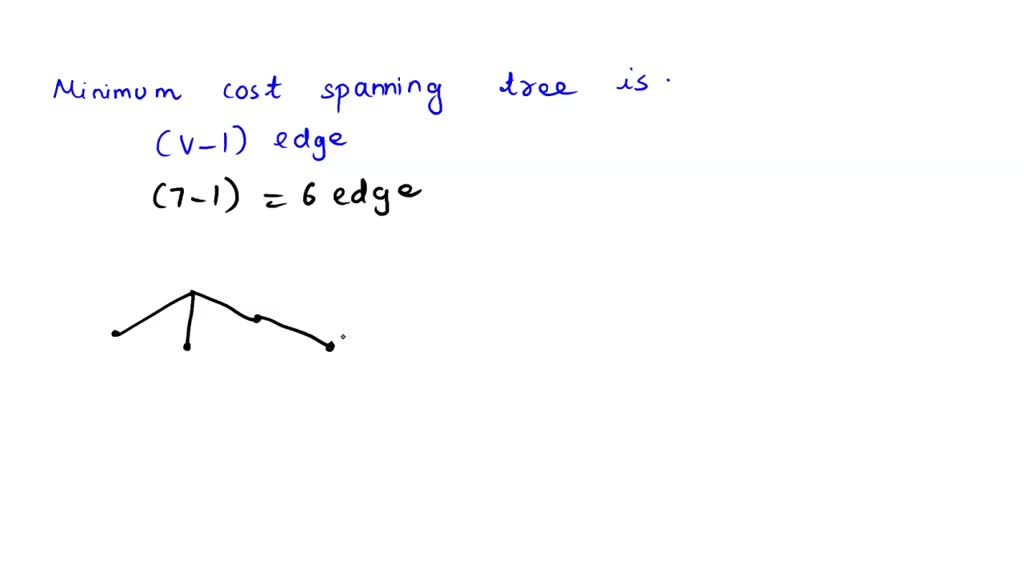 Minimum cost spanning tree is.
(V-1) edge
(7-1) = 6 edge